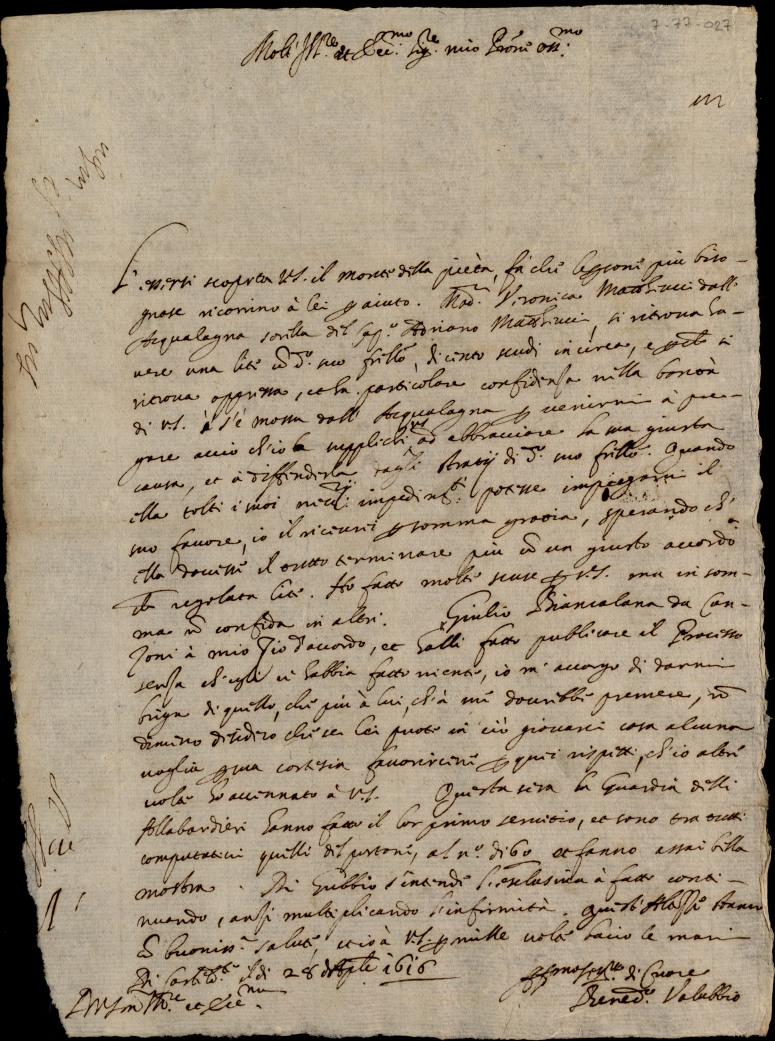 7-77-027
Molt' Ill.re et Ecc.mo Sig.re mio Prōne oss.mo
L'essersi scoperta V.S. il monte della pietà, fa che le persone piu biso-
gnose ricorrino à lei p aiuto. Mad. Veronica dall'
Acqualagna sorella del Adriano si ritrova ha-
vere una lite cō d.o suo frēllo, di cento scudi incirca, e si
ritrova oppressa, et ha particolare confidenza nella bontà
di V.S. s'è mossa dall' Acqualagna p venirmi à pre-
gare acciò ch'io la supplichi V.S. ad abbracciare la sua giusta
causa, et à diffenderla dagli di d.o suo frēllo. Quando
ella tolti i suoi impedim.ti potesse impiegarvi il
suo favore, io il riceverei p somma gratia, sperando ch'
ella dovesse il tutto terminare più cō un giusto accordo
che regolata lite. Ho fatto molte scuse p V.S. ma in som-
ma nō confida in altri. Giulio Biancalana da Can-
toni à mio Zio d'accordo, et halli fatto publicare il Processo
senza ch'egli vi habbia fatto niente, io m'accorgo di darmi
briga di quello, che più à lui, ch'à me dovrebbe premere, nō
dimeno desidero che se lei puote in ciò giovarci cosa alcuna
voglia p sua cortesia favorircene p quei rispetti, ch'io altre
volte ho accennato à V.S. Questa sera la Guardia delli
Allabardieri hanno fatto il lor primo servitio, et sono tra tutti
computativi quelli del portone, al n.o di 60 et fanno assai bella
mostra. Di Gubbio s'intende l'esclusiva à fatto conti-
nuando, anzi multiplicando l'infirmità. Queste Altezze stanno
cō buoniss.a salute, et io à V.S. p mille volte bacio le mani
Di il di 28 1616
Di V.S. molt' Ill.re et Ecc.ma
di Cuore
Bened.o Valubbio